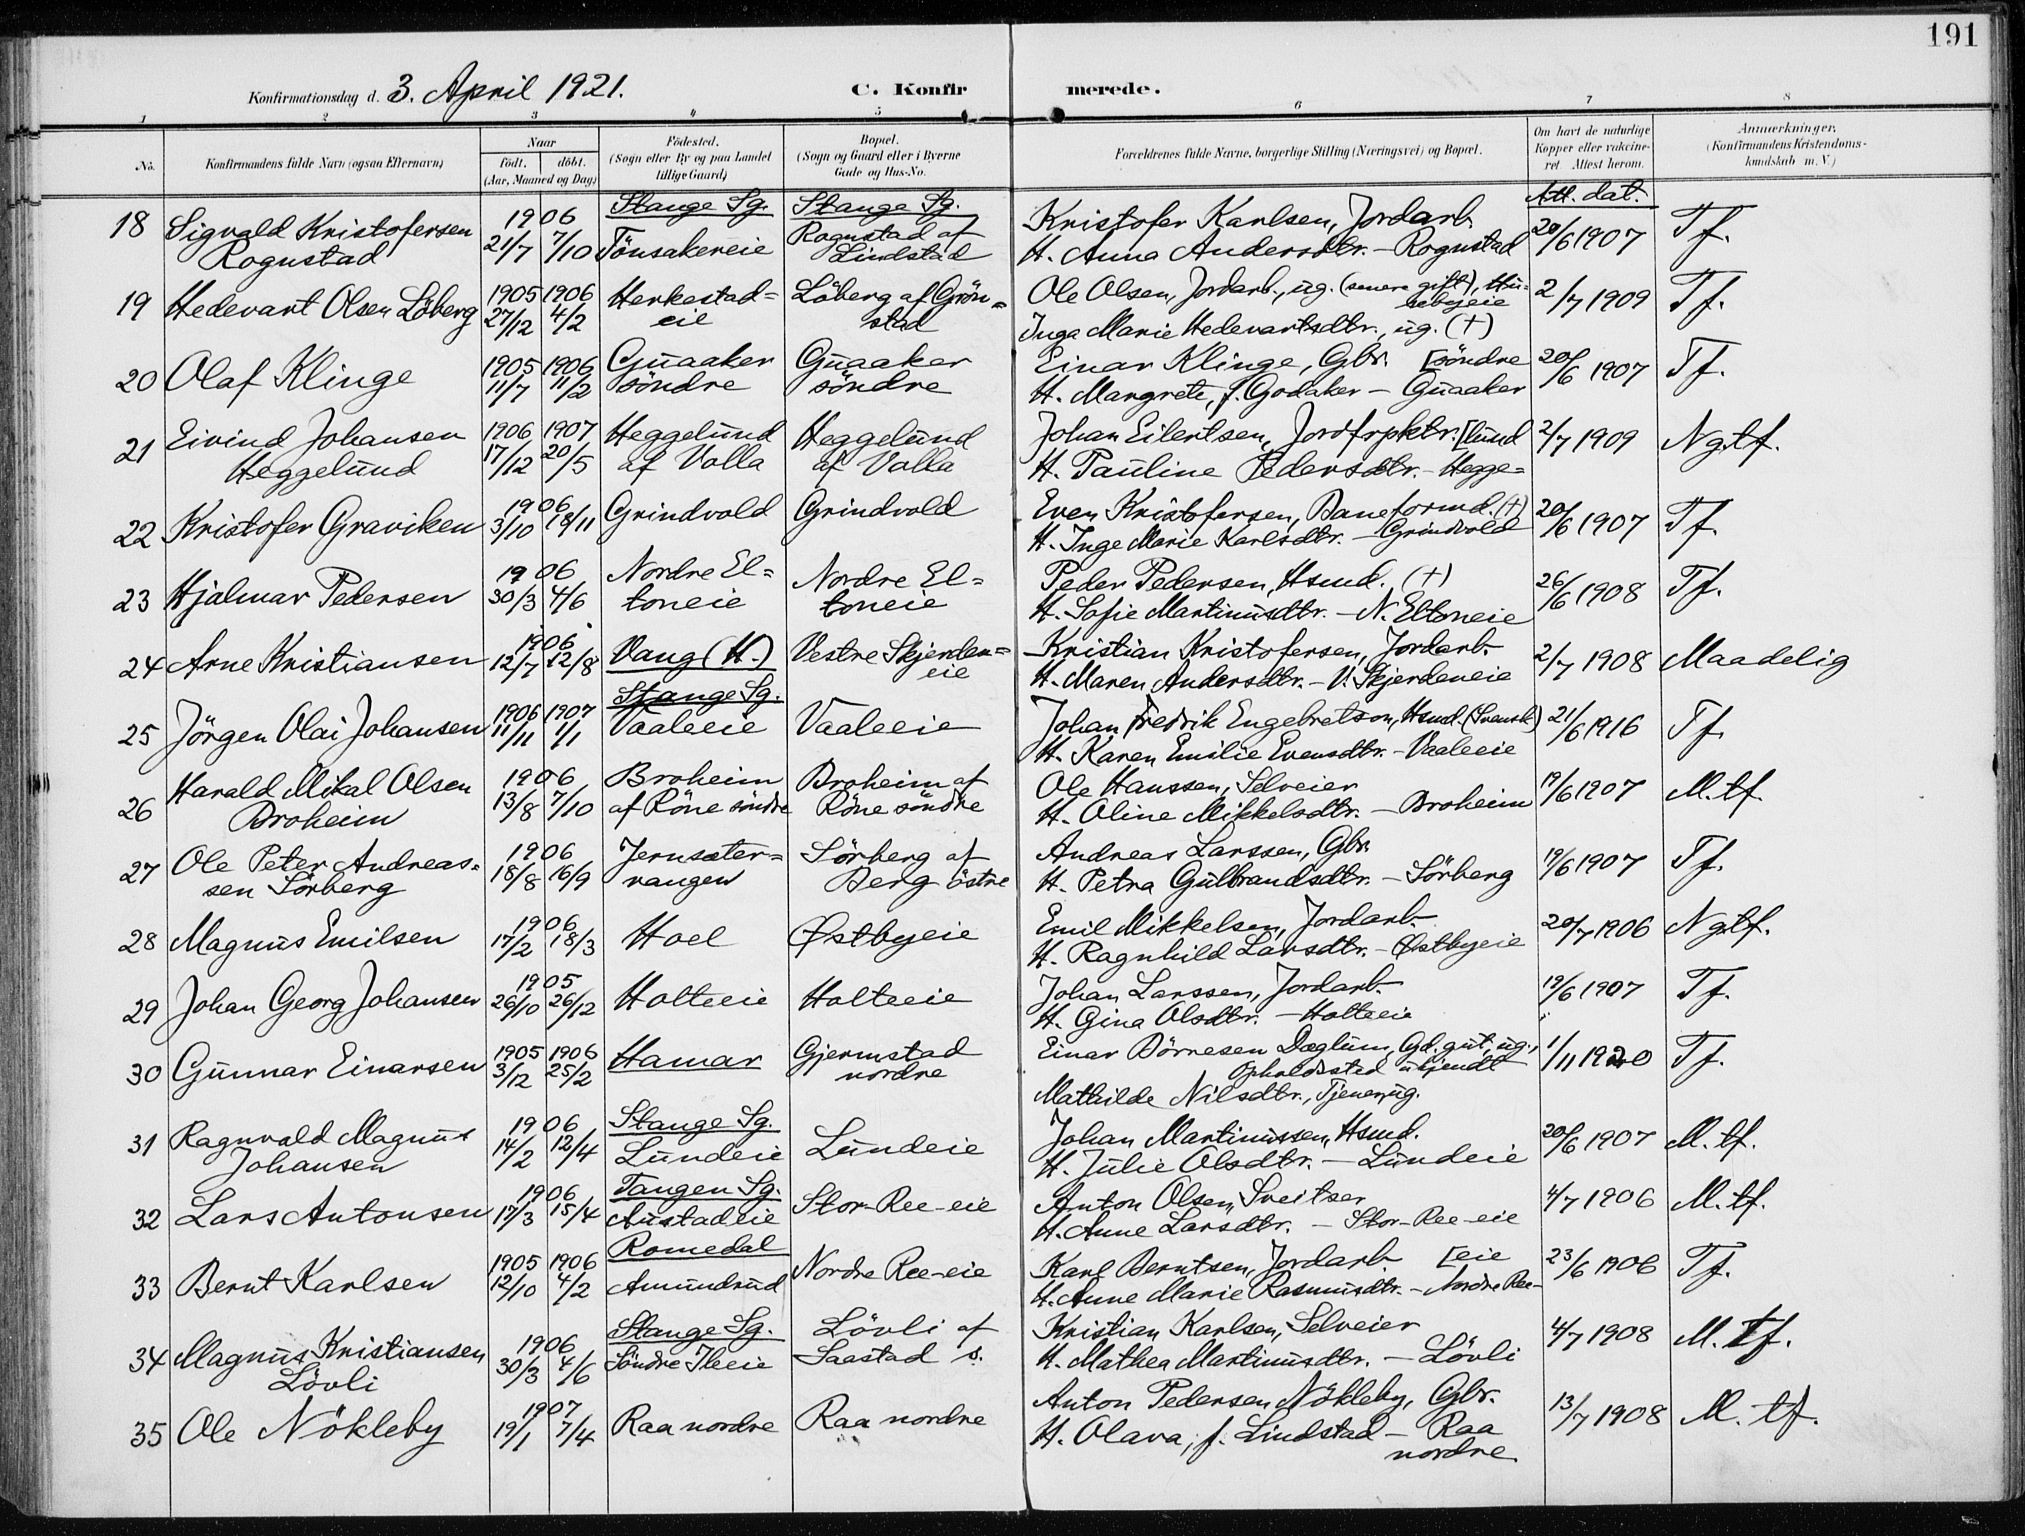 191
Konfirmationsdag d. 3. April 1921.
C. Konfirmerede.
1 2 3 4 5 6 7 8
No.
Konfirmandens fulde Navn (ogsaa Efternavn)
Naar
født. døbt.
(Aar, Maaned og Dag)
Födested.
(Sogn eller By og paa Landet
tillige Gaard)
Bopæl.
(Sogn og Gaard eller i Byerne
Gade og Hus-No.
Forældrenes fulde Navne, borgerlige Stilling (Næringsvei) og Bopæl.
Om havt de naturlige
Kopper eller vakcine-
ret. Attest herom.
Anmærkninger.
(Konfirmandens Kristendoms-
kundskab m. V.)
Att. dat.
18 Sigvald Kristofersen Rognstad
1906 21/7 7/10
Stange Sg. Tönsakereie
Stange Sg. Rognstad af Lindstad
Kristofer Karlsen, Jordarb.
H. Anna Andersdtr. – Rognstad
20/6 1907 Tf.
19 Hedevart Olsen Löberg
1905 27/12 1906 4/2
Herkestad=eie
Löberg af Grön=stad
Ole Olsen, Jordarb., ug. (senere gift), Hu-sebyeie
Inga Marie Hedevartsdtr., ug. (+)
2/7 1909 Tf.
20 Olaf Klinge
1905 11/7 1906 11/2
Guaaker söndre
Guaaker söndre
Einar Klinge, Gbr. [söndre
H. Margrete, f. Godaker – Guaaker
20/6 1907 Tf.
21 Eivind Johansen Heggelund
1906 17/12 1907 20/5
Heggelund af Volla
Heggelund af Valla
Johan Eilertsen, Jordfrpktr. [lund
H. Pauline Pedersdtr. – Hegge=
2/7 1909 Ngtf.
22 Kristofer Graviken
1906 3/10 18/11
Grindvold
Grindvold
Even Kristofersen, Baneformd. (+)
H. Inge Marie Karlsdtr. – Grindvold
20/6 1907 Tf.
23 Hjalmar Pedersen
1906 30/3 4/6
Nordre El=toneie
Nordre El=toneie
Peder Pedersen, Hsmd. (+)
H. Sofie Martinusdtr. – N. Eltoneie
26/6 1908 Tf.
24 Arne Kristiansen
1906 12/7 12/8
Vang (H.)
Vestre Skjerden=eie
Kristian Kristofersen, Jordarb.
H. Maren Andersdtr. – V. Skjerdeneie
2/7 1908 Maadelig
25 Jörgen Olai Johansen
1906 11/11 1907 1/1
Stange Sg. Vaaleeie
Vaaleeie
Johan Fredrik Engebretson, Hsmd. (Svensk)
H. Karen Emilie Evensdtr. – Vaaleeie
21/6 1916 Tf.
26 Harald Mikal Olsen Broheim
1906 13/8 7/10
Broheim af Röne söndre
Broheim af Röne söndre
Ole Hanssen, Selveier
H. Oline Mikkelsdtr. – Broheim
19/6 1907 M.tf.
27 Ole Peter Andreas=sen Sörberg
1906 18/8 16/9
Jernsæter=vangen
Sörberg af Berg östre
Andreas Larssen, Gbr.
H. Petra Gulbrandsdtr. – Sörberg
19/6 1907 Tf.
28 Magnus Emilsen
1906 17/2 18/3
Hoel
Østbyeie
Emil Mikkelsen, Jordarb.
H. Ragnhild Larsdtr. – Østbyeie
20/7 1906 Ngtf.
29 Johan Georg Johansen
1905 26/10 26/12
Holteeie
Holteeie
Johan Larssen, Jordarb.
H. Gina Olsdtr. – Holteeie
19/6 1907 Tf.
30 Gunnar Einarsen
1905 3/12 1906 25/2
Hamar
Gjermstad nordre
Einar Börnesen Dæglum, Gd.gut, ug.,
Opholdssted ukjendt
Mathilde Nilsdtr., Tjener, ug.
1/11 1920 Tf.
31 Ragnvald Magnus Johansen
1906 14/2 12/4
Stange Sg. Lundeie
Lundeie
Johan Martinussen, Hsmd.
H. Julie Olsdtr. – Lundeie
20/6 1907 M.tf.
32 Lars Antonsen
1906 17/3 15/4
Tangen Sg. Austadeie
Stor-Ree-eie
Anton Olsen, Sveitser
H. Anne Larsdtr. – Stor-Ree-eie
4/7 1906 M.tf.
33 Bernt Karlsen
1905 12/10 1906 4/2
Romedal Amundrud
Nordre Ree-eie
Karl Berntsen, Jordarb. [eie
H. Anne Marie Rasmusdtr. – Nordre Ree-
23/6 1906 Tf.
34 Magnus Kristiansen Lövli
1906 30/3 4/6
Stange Sg. Söndre Ileeie
Lövli af Saastad s.
Kristian Karlsen, Selveier
H. Mathea Martinusdtr. – Lövli
4/7 1908 M.tf.
35 Ole Nökleby
1907 19/1 7/4
Raa nordre
Raa nordre
Anton Pedersen Nökleby, Gbr.
H. Olava, f. Lindstad – Raa nordre
13/7 1908 M.tf.